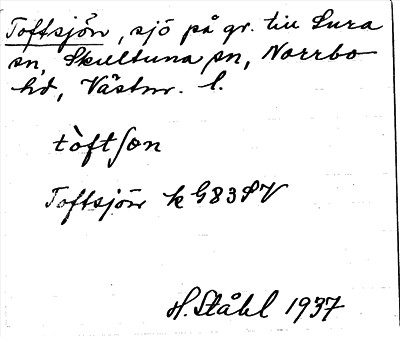 Toftsjön, sjö på gr. till Sura
sn, Skultuna sn, Norrbo
hd, Västm. l.
tòftʃөn
Toftsjön k G83SV
H. Ståhl 1937